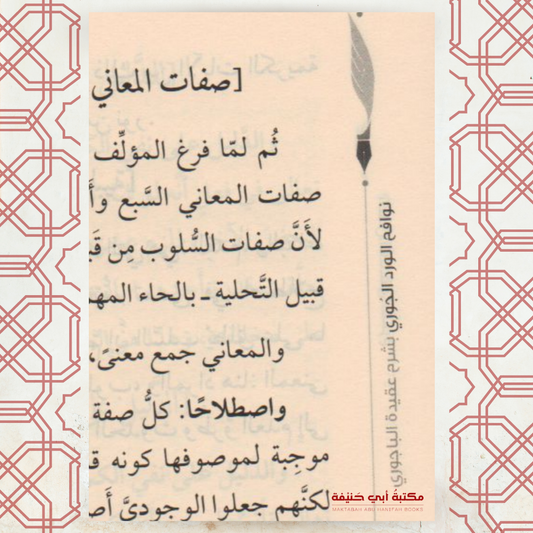 [صفات المعاني
ثُم لمّا فرغ المؤلِّف
صفات المعاني السَّبع
لأَنَّ صفات السُّلوب مِن
قبيل التَّحلية ـ بالحاء
والمعاني جمع معنىً،
واصطلاحًا: كلُّ صفة
موجِبة لموصوفها كونه
لكنَّهم جعلوا الوجوديَّ
نوافح الورد الجُوري بشرح عقيدة الباجوري
مكتبة أبي حنيفة
MAKTABAH ABU HANIFAH BOOKS